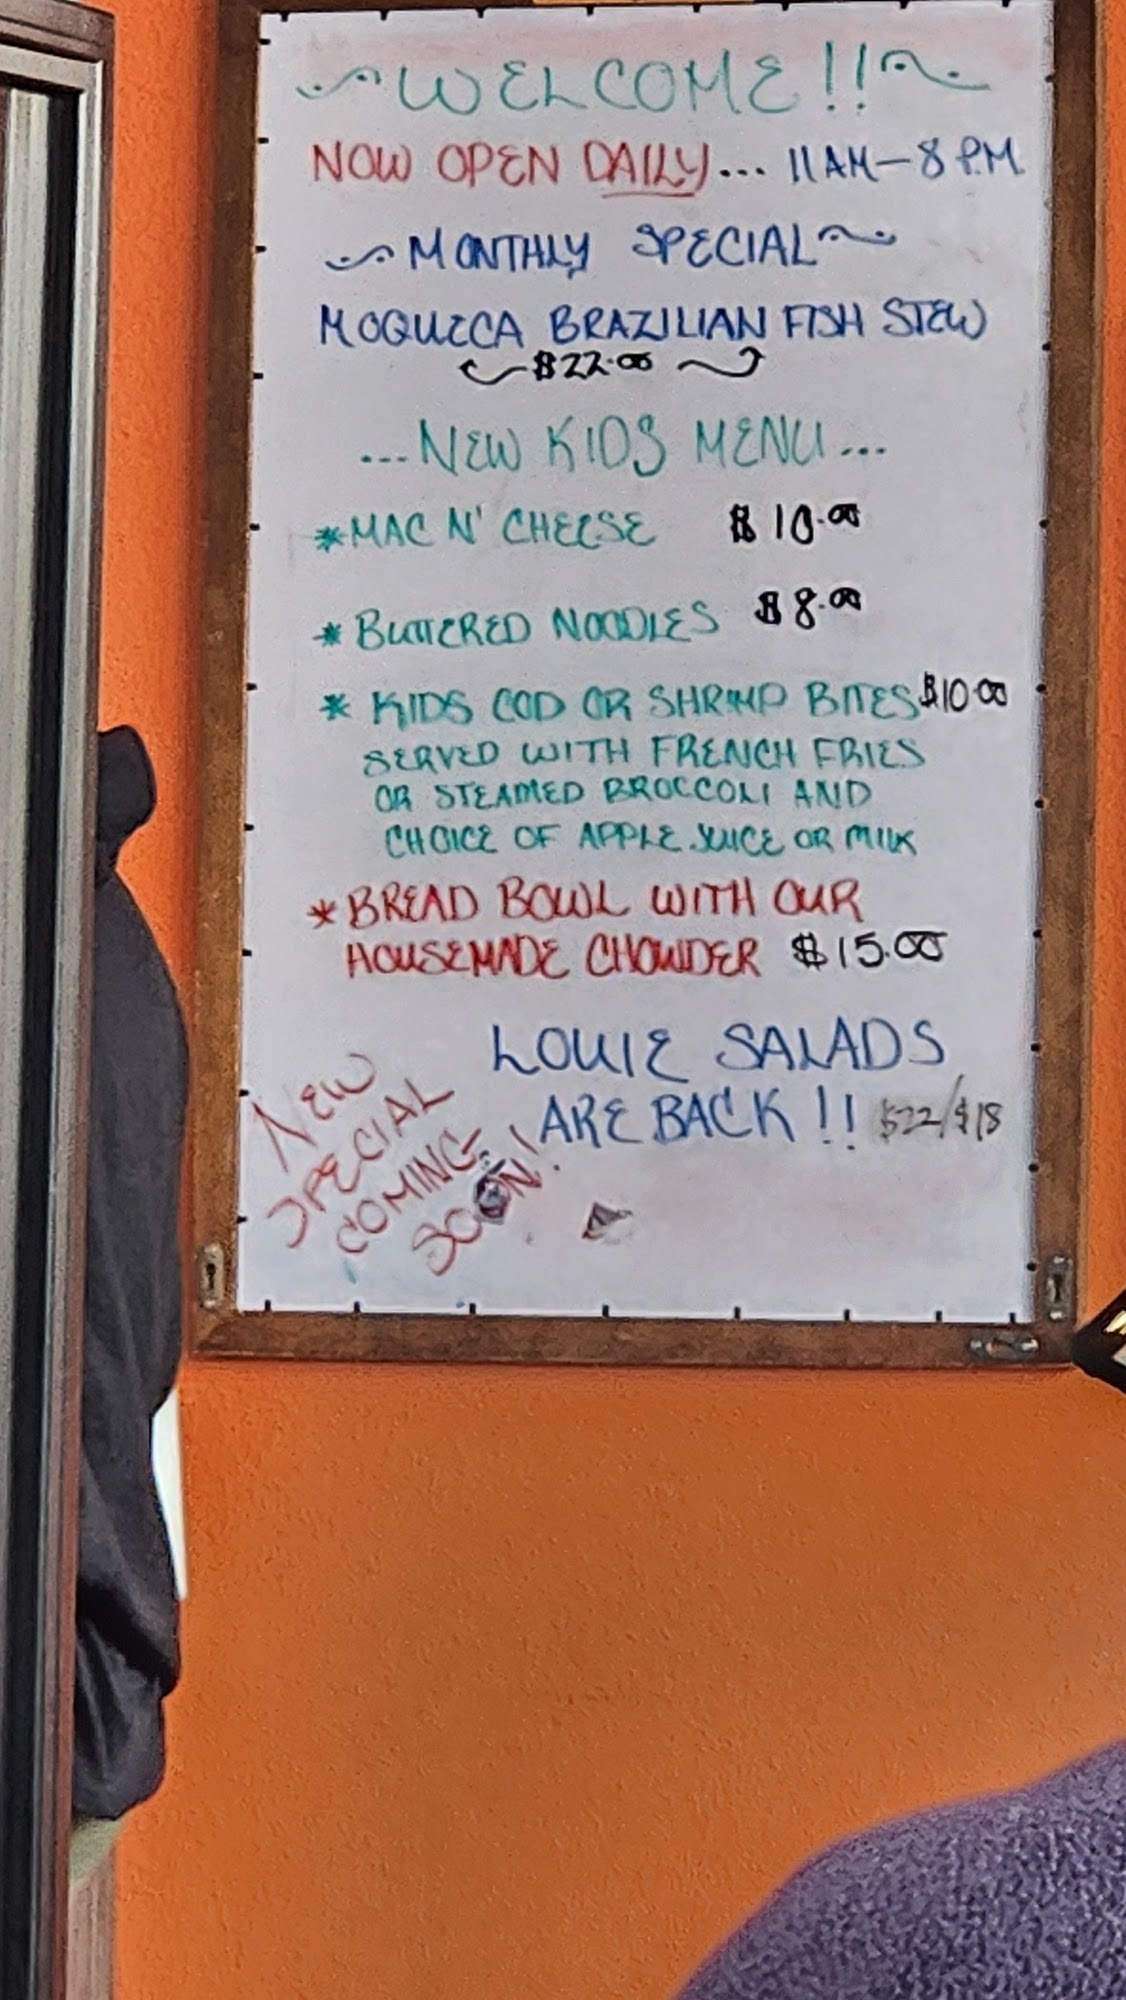 WELCOME!!
NOW OPEN DAILY... 11AM-8 P.M.
MONTHLY SPECIAL
MOQUECA BRAZILIAN FISH STEW
$22.00
...NEW KIDS MENU...
*MAC N' CHEESE $10.00
*BUTTERED NOODLES $8.00
* KIDS COD OR SHRIMP BITES $10.00
SERVED WITH FRENCH FRIES
OR STEAMED BROCCOLI AND
CHOICE OF APPLE JUICE OR MILK
*BREAD BOWL WITH OUR
HOUSEMADE CHOWDER $15.00
LOUIE SALADS
ARE BACK!! $22/$18
NEW
SPECIAL
COMING
SOON!